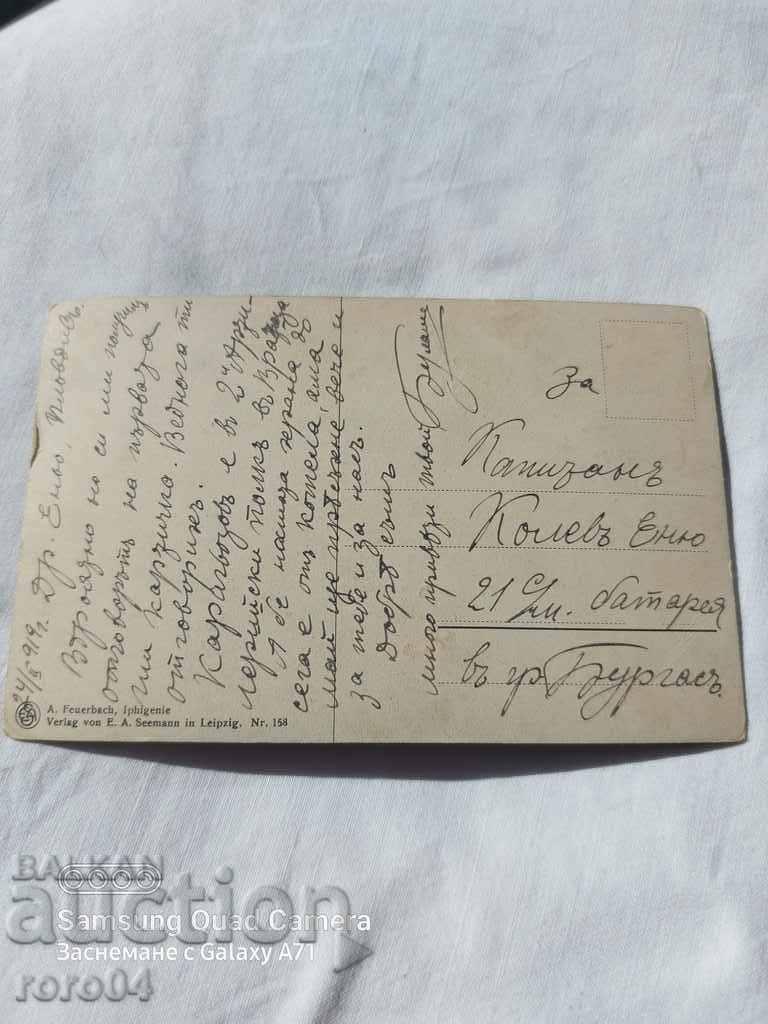 24/X 919 г. Др. Еньо, Пловдивъ.
Вѣроятно но си ми получи
отговорътъ на първата
ти картичка. Веднага ти
отговорихъ.
Карагьозовъ е въ 2й Арти-
лерийски полкъ въ Враца
А бе нашата храна до
сега е отъ котела, ама
май ще протече вече и
за тебе и за насъ.
Добрѣ съмъ
много привѣти твой
За
Капитанъ
Колевъ Еню
21 батарея
въ гр. Бургасъ.
A. Feuerbach, Iphigenie
Verlag von E. A. Seemann in Leipzig. Nr. 158
BALKAN
auction
Samsung Quad Camera
Заснемане с Galaxy A71
roro04